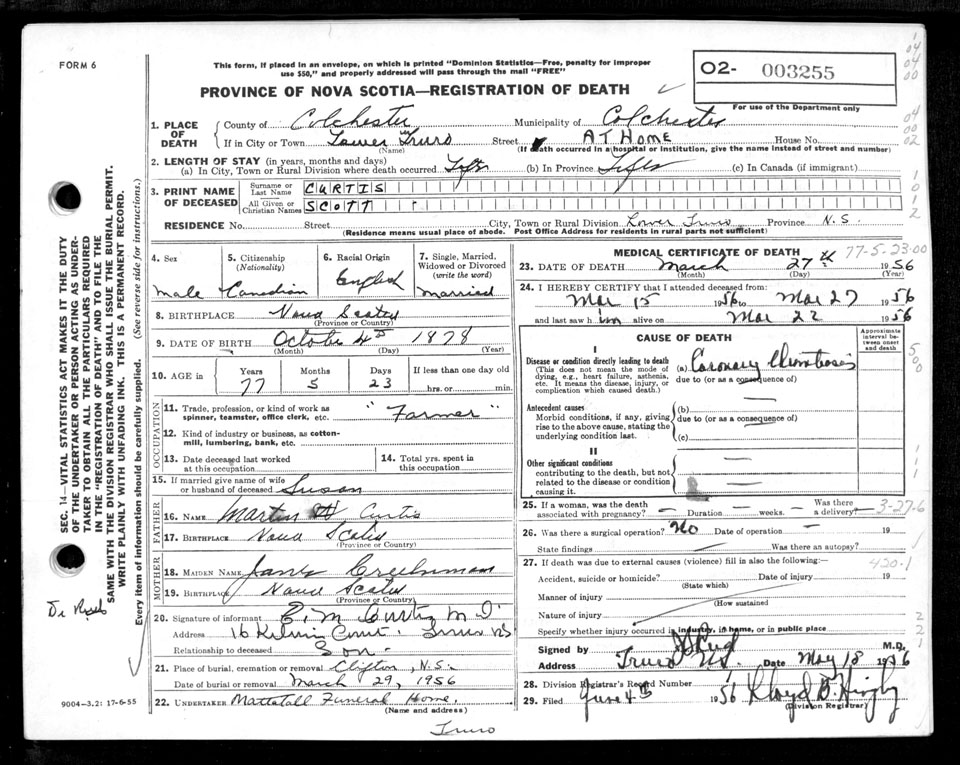 FORM 6
This form, if placed in an envelope, on which is printed "Dominion Statistics—Free, penalty for improper
use $50," and properly addressed will pass through the mail "FREE"
PROVINCE OF NOVA SCOTIA—REGISTRATION OF DEATH
02- 003255
For use of the Department only
1. PLACE OF DEATH
County of Colchester Municipality of Colchester
If in City or Town Lower Truro Street AT HOME House No.
(Name) (If death occurred in a hospital or institution, give the name instead of street and number)
2. LENGTH OF STAY (in years, months and days)
(a) In City, Town or Rural Division where death occurred Life (b) In Province Life (c) In Canada (if immigrant)
3. PRINT NAME OF DECEASED
Surname or Last Name CURTIS
All Given or Christian Names SCOTT
RESIDENCE No. Street City, Town or Rural Division Lower Truro Province N.S.
(Residence means usual place of abode. Post Office Address for residents in rural parts not sufficient)
4. Sex
male
5. Citizenship
(Nationality)
Canadian
6. Racial Origin
English
7. Single, Married,
Widowed or Divorced
(write the word)
married
8. BIRTHPLACE Nova Scotia
(Province or Country)
9. DATE OF BIRTH October 4th 1878
(Month) (Day) (Year)
10. AGE IN
Years Months Days If less than one day old
77 5 23 hrs. or min.
OCCUPATION
11. Trade, profession, or kind of work as
spinner, teamster, office clerk, etc. "Farmer"
12. Kind of industry or business, as cotton-
mill, lumbering, bank, etc.
13. Date deceased last worked
at this occupation
14. Total yrs. spent in
this occupation
15. If married give name of wife
or husband of deceased Susan
FATHER
16. NAME Martin Curtis
17. BIRTHPLACE Nova Scotia
(Province or Country)
MOTHER
18. MAIDEN NAME Creelman
19. BIRTHPLACE Nova Scotia
(Province or Country)
20. Signature of informant E. M. Curtis M.D.
Address 16 Court. Truro NS
Relationship to deceased Son.
21. Place of burial, cremation or removal Clifton, N.S.
Date of burial or removal March 29, 1956
22. UNDERTAKER Mattatall Funeral Home,
(Name and address)
Truro
MEDICAL CERTIFICATE OF DEATH
77-5-23-00
23. DATE OF DEATH March 27th 1956
(Month) (Day) (Year)
24. I HEREBY CERTIFY that I attended deceased from:
Mar 15 1956 to Mar 27 1956
and last saw him alive on Mar 22 1956
CAUSE OF DEATH
Approximate interval between onset and death
I
Disease or condition directly leading to death
(This does not mean the mode of
dying, e.g., heart failure, asthenia,
etc. It means the disease, injury, or
complication which caused death.)
(a) Coronary Thrombosis
due to (or as a consequence of)
Antecedent causes
Morbid conditions, if any, giving
rise to the above cause, stating the
underlying condition last.
(b)
due to (or as a consequence of)
(c)
II
Other significant conditions
contributing to the death, but not
related to the disease or condition
causing it.
25. If a woman, was the death
associated with pregnancy? — Duration — weeks. — Was there a delivery? —
3-27-6
26. Was there a surgical operation? No Date of operation — 19
State findings Was there an autopsy?
27. If death was due to external causes (violence) fill in also the following:—
420.1
Accident, suicide or homicide? Date of injury 19
(State which)
Manner of injury
(How sustained
Nature of injury
Specify whether injury occurred in industry, in home, or in public place
Signed by M.D.
Address Truro NS. Date May 18 1956
28. Division Registrar's Record Number
29. Filed June 4th 1956 Lloyd B.
(Division Registrar)
SEC. 14—VITAL STATISTICS ACT MAKES IT THE DUTY
OF THE UNDERTAKER OR PERSON ACTING AS UNDER-
TAKER TO OBTAIN ALL THE PARTICULARS REQUIRED
IN THE "REGISTRATION OF DEATH" AND TO FILE THE
SAME WITH THE DIVISION REGISTRAR WHO SHALL ISSUE THE BURIAL PERMIT.
WRITE PLAINLY WITH UNFADING INK. THIS IS A PERMANENT RECORD.
Every item of information should be carefully supplied. (See reverse side for instructions.)
9004-3.2: 17-6-55